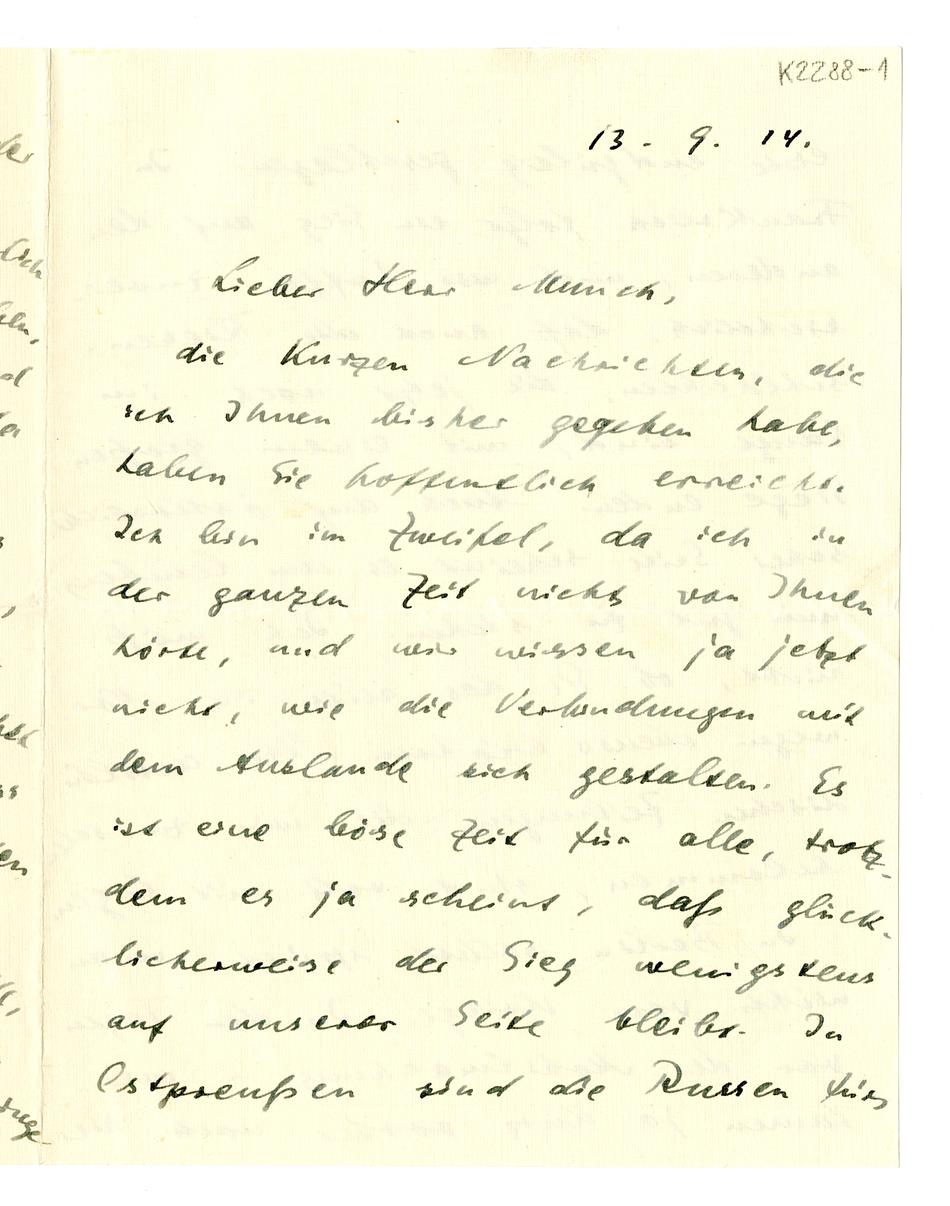 K2288-1
13. 9. 14.
Lieber Herr Munch,
die kurzen Nachrichten, die
ich Ihnen bisher gegeben habe,
haben Sie hoffentlich erreicht.
Ich bin im Zweifel, da ich in
der ganzen Zeit nichts von Ihnen
hörte, und wir wissen ja jetzt
nicht, wie die Verbindungen mit
dem Auslande sich gestalten. Es
ist eine böse Zeit für alle, trotz-
dem es ja scheint, daß glück-
licherweise der Sieg wenigstens
auf unserer Seite bleibt. In
Ostpreußen sind die Russen fürs